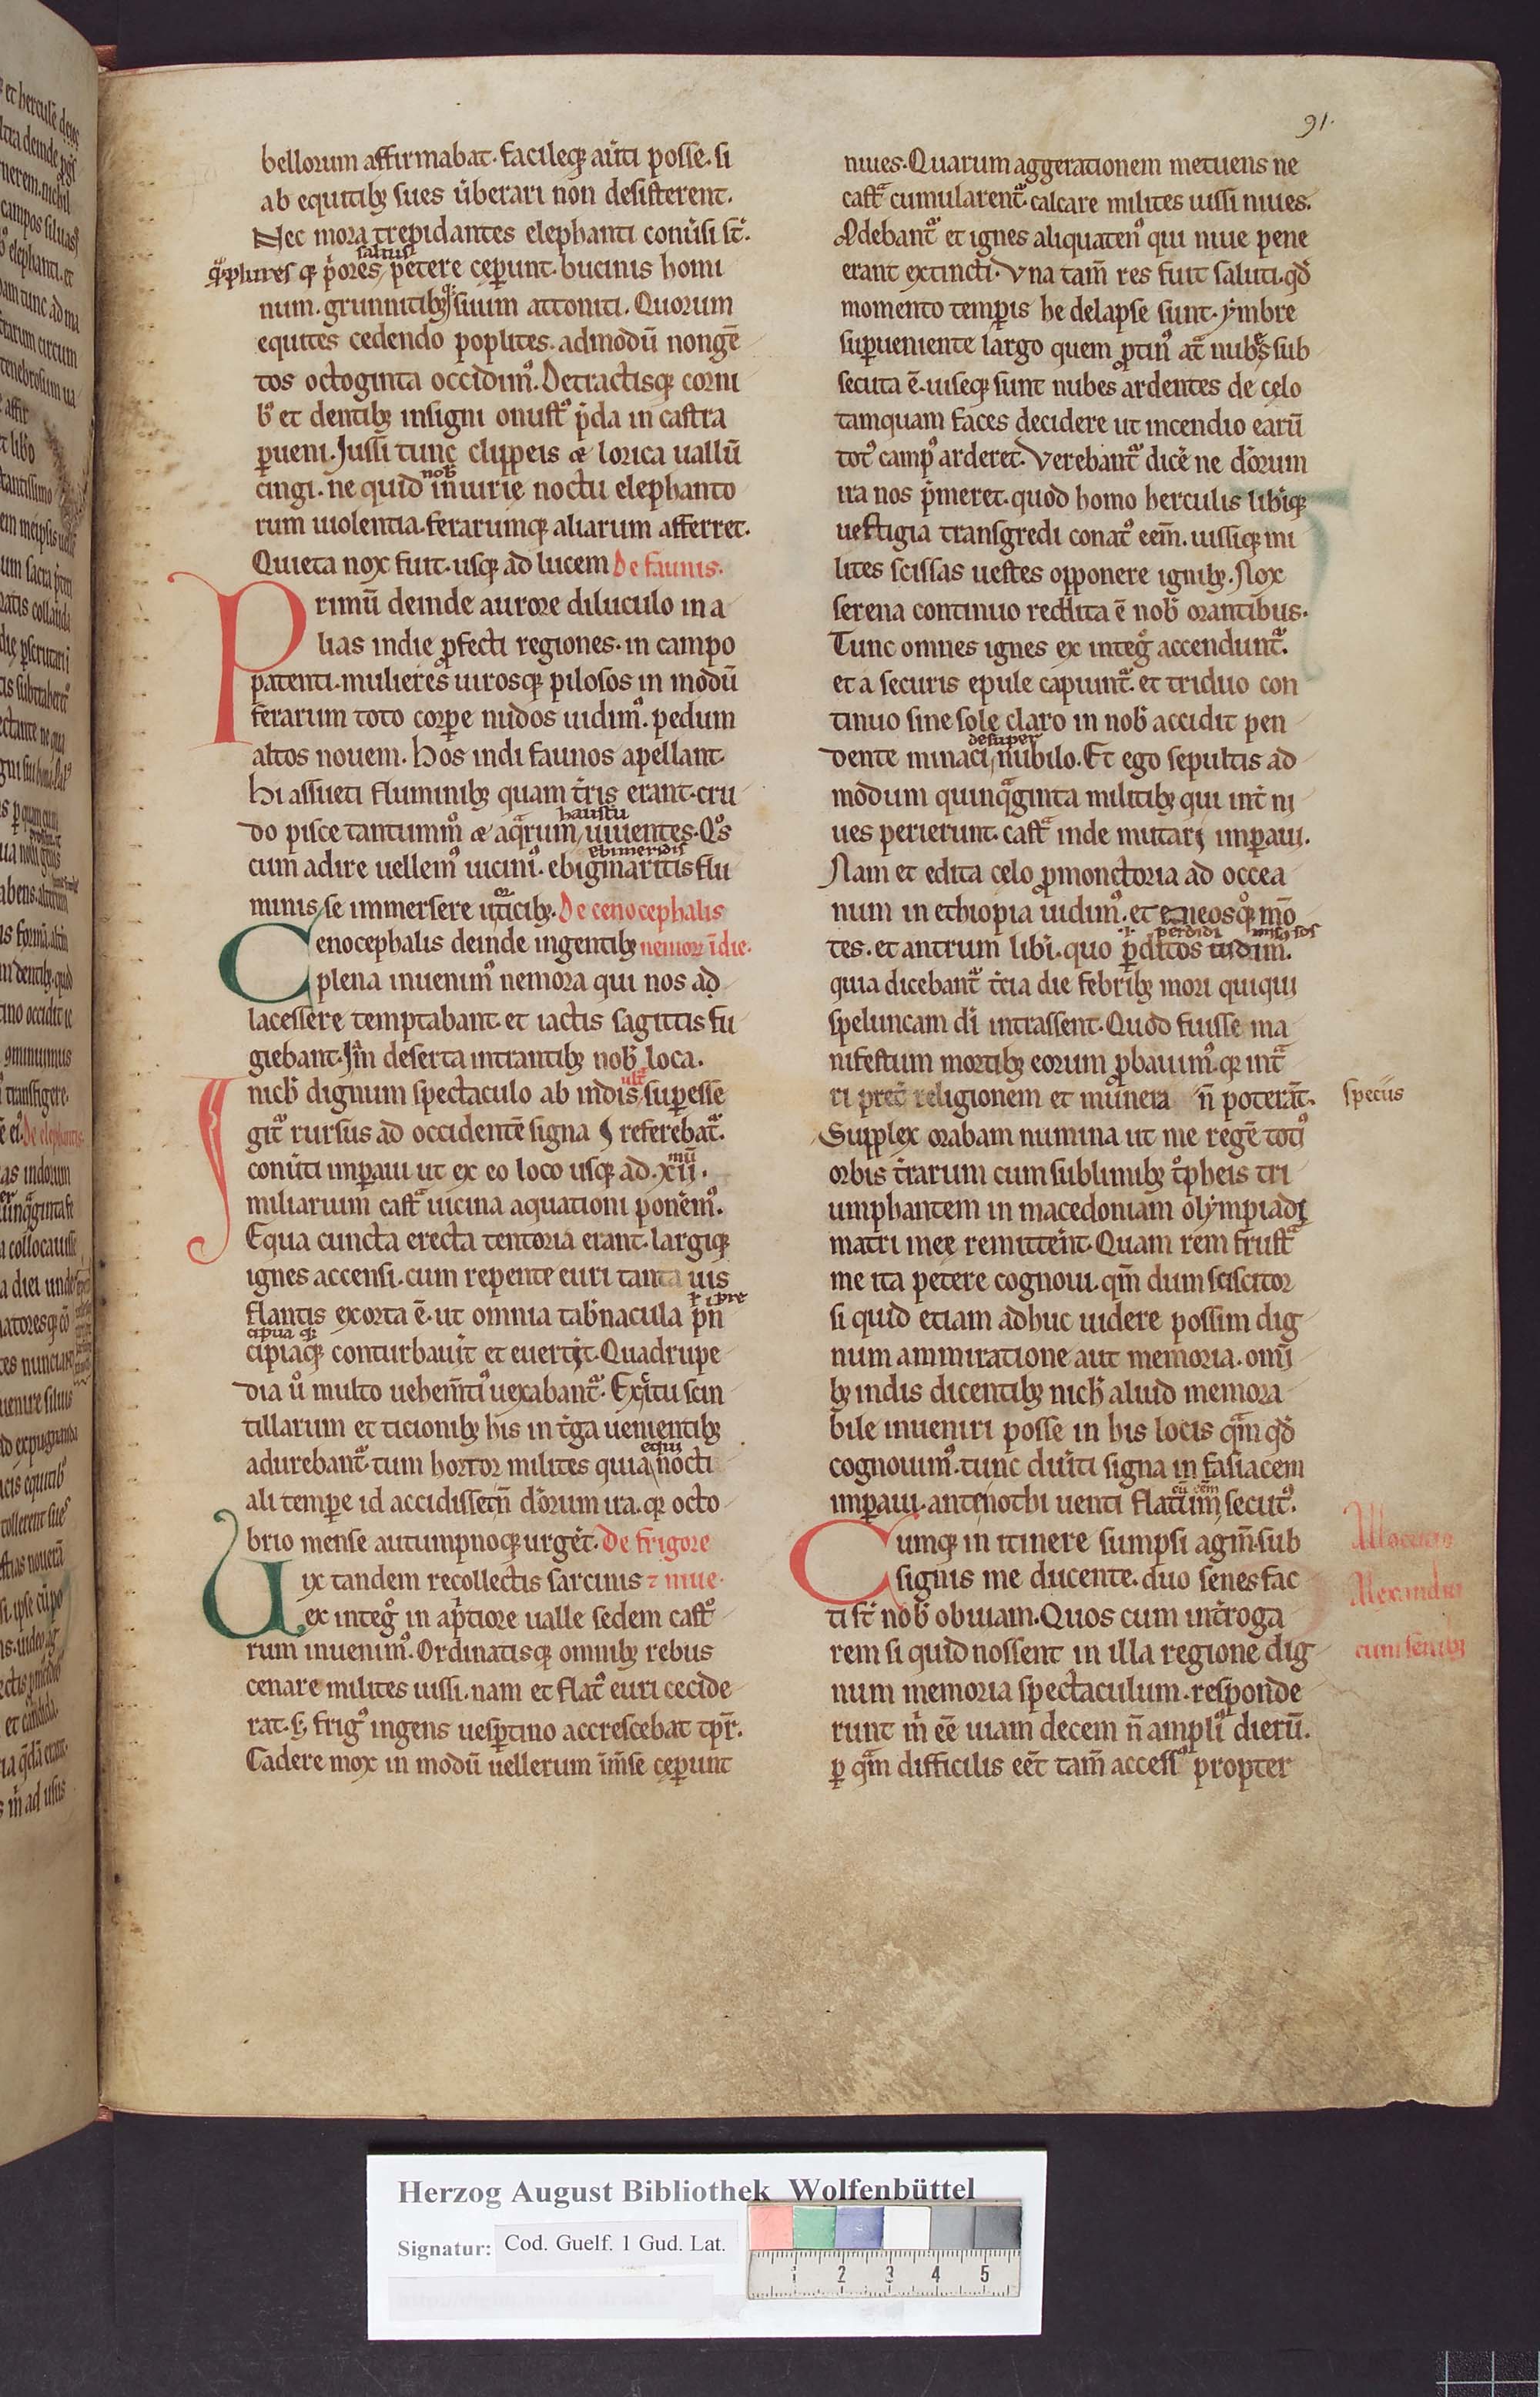 91.
bellorum affirmabat. facileq; aũti posse. si
ab equitib; sues ũberari non desisterent.
Nec mora trepidantes elephanti conũsi st̃.
saltus
q̃plures q; p̃ores petere ceperunt. bucinis homi
num. grunnitib; suum attoniti. Quorum
equites cedendo poplites. admodũ nongẽ
tos octoginta occidim᷒. Detractisq; corni
b᷒ et dentib; insigni onust᷒ p̃da in castra
ꝑueni. Jussi tunc clippeis & lorica uallũ
nob̃
cingi. ne quid iniurie noctu elephanto
rum uiolentia. ferarumq; aliarum afferret.
Quieta nox fuit. usq; ad lucem De faunis.
Primũ deinde aurore diluculo in a
lias indie ꝓfecti regiones. in campo
patenti. mulieres uirosq; pilosos in modũ
ferarum toto corꝑe nudos uidim᷒. pedum
altos nouem. Hos indi faunos apellant.
Hi assueti fluminib; quam t̃ris erant. cru
haustu
do pisce tantumm᷒ & aq̃rum uiuentes. Q᷒s
ebimeridis
cum adire uellem᷒ uicini᷒. ebigmaritis flu
minis se immersere uticib;. De cenocephalis
Cenocephalis deinde ingentib; nemor̃ ĩdie
plena inuenim᷒ nemora qui nos ad
lacessere temptabant. et iactis sagittis fu
giebant. Jm̃ deserta intrantib; nob̃ loca.
ult̃
nich̃ dignum spectaculo ab indis supesse
git̃ rursus ad occidentẽ signa referebat̃.
conũti imꝑaui ut ex eo loco usq; ad. xii.
miliarium cast̃ uicina aquationi ponẽm᷒.
Equa cuncta erecta tentoria erant. largiq;
ignes accensi. cum repente euri tanta uis
flantis exorta ẽ. ut omnia tab̃nacula p̃n
cipua q;
cipiaq; conturbauit et euertit. Quadrupe
dia ũ multo uehem̃ti᷒ uexabant̃. Exq̃tu scin
tillarum et ticionib; his in t̃ga uenientib;
equi
adurebant̃. tum hortor milites quia nocti
ali tempe id accidisset ñ d̃orum ira. q; octo
brio mense autumpnoq; urgẽt. De frigore
Uix tandem recollectis sarcinis ⁊ niue.
ex integ᷒ in ap̃tiore ualle sedem cast᷒
rum inuenim᷒. Ordinatisq; omnib; rebus
cenare milites iussi. nam et flat᷒ euri cecide
rat. s; frig᷒ ingens uesꝑtino accrescebat tp̃r.
Cadere mox in modũ uellerum im̃se ceꝑunt
niues. Quarum aggerationem metuens ne
cast̃ cumularent̃. calcare milites iussi niues.
Odebant̃ et ignes aliquaten᷒ qui niue pene
erant extincti. Vna tam̃ res fuit saluti. qđ
momento temꝑis he delapse sunt. ymbre
suꝑueniente largo quem ꝓtin᷒ at̃ nubes sub
secuta ẽ. uiseq; sunt nubes ardentes de celo
tamquam faces decidere ut incendio earũ
tot᷒ camp᷒ arderet. Verebant̃ dicẽ ne d̃orum
ira nos p̃meret. quod homo herculis libiq;
uestigia transgredi conat᷒ eem̃. iussiq; mi
lites scissas uestes opponere ignib;. Nox
serena continuo reddita ẽ nob̃ orantibus.
Tunc omnes ignes ex integ᷒ accendunt̃.
et a securis epule capiunt̃. et triduo con
tinuo sine sole claro in nob̃ accidit pen
desuper
dente minaci nubilo. Et ego sepultis ad
modum quinq̃ginta militib; qui int̃ ni
ues perierunt. cast̃ inde mutari imꝑaui.
Nam et edita celo ꝓmonctoria ad occea
num in ethiopia uidim᷒. et eneosq᷒; mõ
perdidi
tes. et antrum lib̃i. quo p̃ditos
quia dicebant̃ t̃cia die febrib; mori quiqui
speluncam di᷒ intrassent. Quod fuisse ma
nifestum mortib; eorum ꝓbauim᷒. q; int̃
ri prec̃ religionem et munera ñ poterãt.
specus
Supplex orabam numina ut me regẽ toti᷒
orbis t̃rarum cum sublimib; t᷒pheis tri
umphantem in macedoniam olympiadi
matri mee remittẽnt. Quam rem frust̃
me ita petere cognoui. qm̃ dum sciscitor
si quid etiam adhuc uidere possim dig
num ammiratione aut memoria. omi
b; indis dicentib; nich̃ aliud memora
bile inueniri posse in his locis q̃m qđ
cognouim᷒. tunc dũiti signa in fasiacem
imꝑaui. antenothi uenti flatum secut᷒.
Cumq; in itinere sumpsi agm̃. sub
signis me ducente. duo senes fac
ti st̃ nob̃ obuiam. Quos cum int̃roga
rem si quid nossent in illa regione dig
num memoria spectaculum. responde
runt m̃ eẽ uiam decem ñ ampli᷒ dierũ.
ꝑ q̃m difficilis eẽt tam̃ access᷒ propter
Alexandri
cum senib;
Herzog August Bibliothek Wolfenbüttel
Signatur: Cod. Guelf. 1 Gud. Lat.
1 2 3 4 5